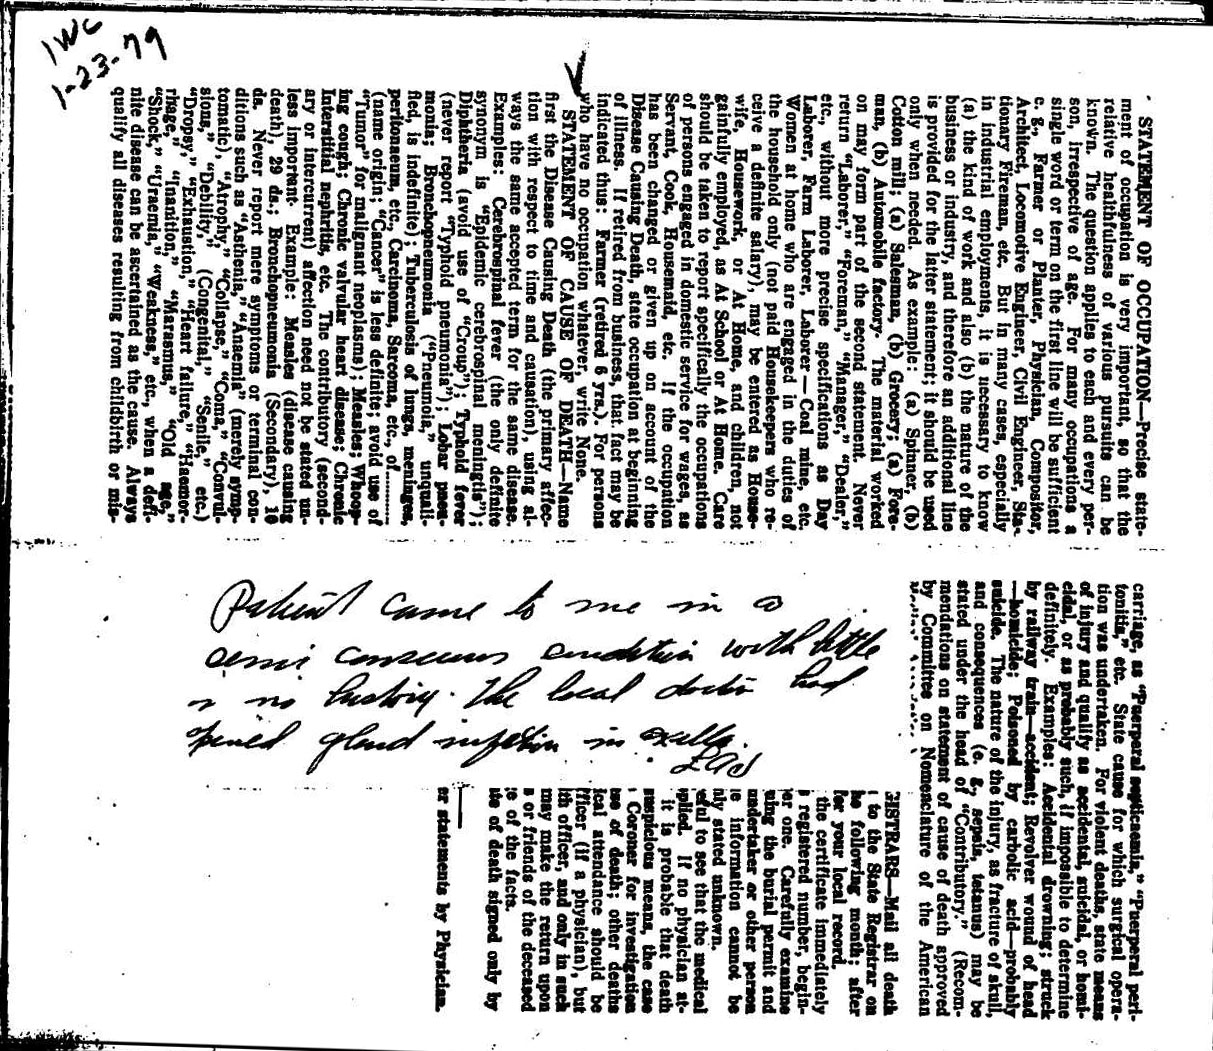 1-23-79
STATEMENT OF OCCUPATION—Precise state-
ment of occupation is very important, so that the
relative healthfulness of various pursuits can be
known. The question applies to each and every per-
son, irrespective of age. For many occupations a
single word or term on the first line will be sufficient
e. g., Farmer or Planter, Physician, Compositor,
Architect, Locomotive Engineer, Civil Engineer, Sta-
tionary Fireman, etc. But in many cases, especially
in industrial employments, it is necessary to know
(a) the kind of work and also (b) the nature of the
business or industry, and therefore an additional line
is provided for the latter statement; it should be used
only when needed. As example: (a) Spinner, (b)
Cotton mill; (a) Salesman, (b) Grocery; (a) Fore-
man, (b) Automobile factory. The material worked
on may form part of the second statement. Never
return "Laborer," "Foreman," "Manager," "Dealer,"
etc., without more precise specifications as Day
Laborer, Farm Laborer, Laborer—Coal mine, etc.
Women at home who are engaged in the duties of
the household only (not paid Housekeepers who re-
ceive a definite salary), may be entered as House-
wife, Housework, or At Home, and children, not
gainfully employed, as At School or At Home. Care
should be taken to report specifically the occupations
of persons engaged in domestic service for wages, as
Servant, Cook, Housemaid, etc. If the occupation
has been changed or given up on account of the
Disease Causing Death, state occupation at beginning
of illness. If retired from business, that fact may be
indicated thus: Farmer (retired 6 yrs.). For persons
who have no occupation whatever, write None.
STATEMENT OF CAUSE OF DEATH—Name
first the Disease Causing Death (the primary affec-
tion with respect to time and causation), using al-
ways the same accepted term for the same disease.
Examples: Cerebrospinal fever (the only definite
synonym is "Epidemic cerebrospinal meningtis");
Diphtheria (avoid use of "Croup"); Typhoid fever
(never report "Typhoid pneumonia"); Lobar pneu-
monia; Bronchopneumonia ("Pneumonia," unquali-
fied, is indefinite); Tuberculosis of lungs, meninges,
peritonaeum, etc., Carcinoma, Sarcoma, etc., of
(name origin; "Cancer" is less definite; avoid use of
"Tumor" for malignant neoplasms); Measles; Whoop-
ing cough; Chronic valvular heart disease; Chronic
Interstitial nephritis, etc. The contributory (second-
ary or intercurrent) affection need not be stated un-
less important. Example: Measles (disease causing
death), 29 ds.; Bronchopneumonia (Secondary), 10
ds. Never report mere symptoms or terminal con-
ditions such as "Asthenia," "Anaemia" (merely symp-
tomatic), "Atrophy," "Collapse," "Coma," "Convul-
sions," "Debility," (Congenital," "Senile," etc.)
"Dropsy," "Exhaustion," "Heart failure," "Haemor-
rhage," "Inanition," "Marasmus," "Old age,"
"Shock," "Uraemia," "Weakness," etc., when a defi-
nite disease can be ascertained as the cause. Always
qualify all diseases resulting from childbirth or mis-
carriage, as "Puerperal septicaemia," "Puerperal peri-
tonitis," etc. State cause for which surgical opera-
tion was undertaken. For violent deaths, state means
of injury and qualify as accidental, suicidal, or homi-
cidal, or as probably such, if impossible to determine
definitely. Examples: Accidental drowning; struck
by railway train—accident; Revolver wound of head
—homicide; Poisoned by carbolic acid—probably
suicide. The nature of the injury, as fracture of skull,
and consequences (e. g., sepsis, tetanus) may be
stated under the head of "Contributory." (Recom-
mendations on statement of cause of death approved
by Committee on Nomenclature of the American
GISTRARS—Mail all death
to the State Registrar on
he following month; after
for your local record.
the certificate immediately
registered number, begin-
er one. Carefully examine
uing the burial permit and
undertaker or other person
e information cannot be
nly stated unknown.
eful to see that the medical
plied. If no physician at-
it is probable that death
suspicious means, the case
Coroner for investigation
use of death; other deaths
ical attendance should be
fficer (if a physician), but
th officer, and only in such
may make the return upon
s or friends of the deceased
ge of the facts.
te of death signed only by
er statements by Physician.
Patient came to me in a
semi conscious condition with little
or no history. The local doctor had
opened gland infection in axilla.